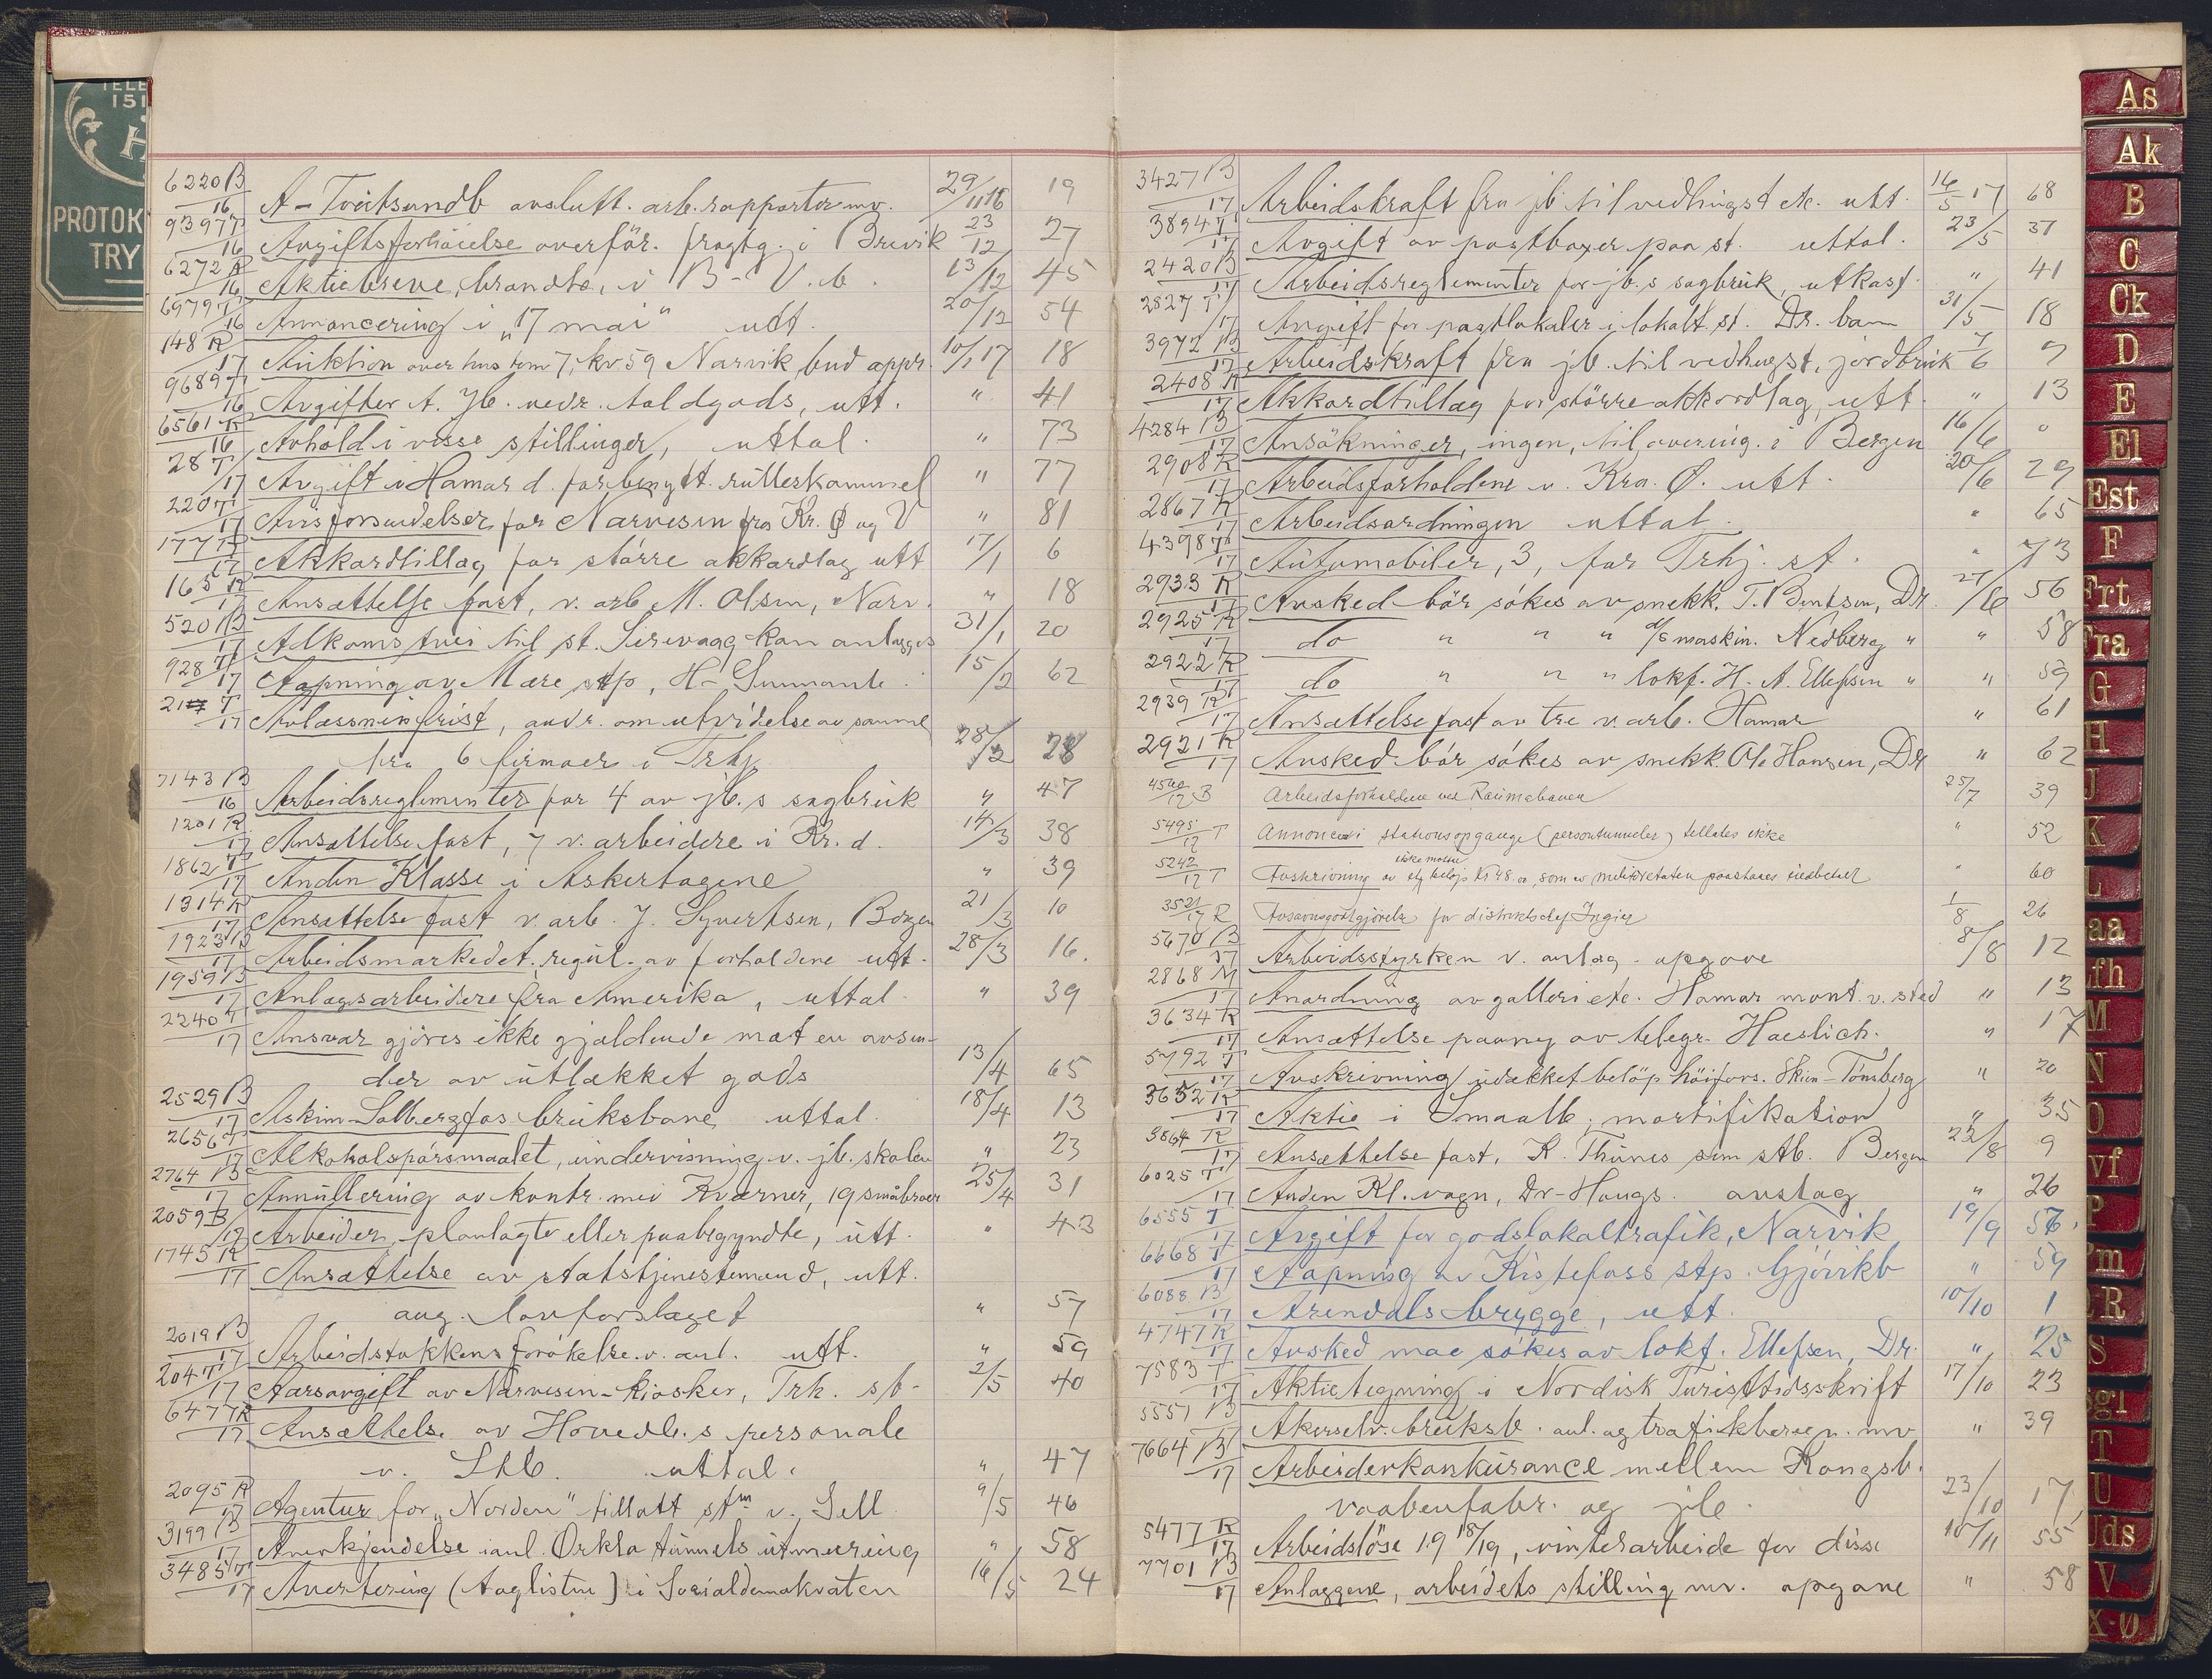 TELE
151
PROTOK
TRY
6220 B/16 A-Treitsundb avslutt. arb. rapporter mv. 29/11 16 19
9397 T/16 Avgiftsforhöielse overför. fragtg. i Brevik 23/12 27
6272 R/16 Aktiebreve, brandte, i B-V.b. 13/12 45
6979 T/16 Annoncering i "17 mai" utt. 20/12 54
148 R/17 Auktion over hus tom 7, kv 59 Narvik, bud appr. 10/1 17 18
9689 T/16 Avgifter t. jb. vedr. toldgods, utt. " 41
6561 R/16 Avhold i visse stillinger, uttal. " 73
28 T/17 Avgift i Hamar d. for benytt. rulleskammel " 77
220 T/17 Avisforsendelser for Narvesen fra Kr. Ø og V " 81
177 R/17 Akkordtillæg for större akkordlag utt 17/1 6
165 R/17 Ansættelse fast, v. arb. M. Olsen, Narv. " 18
520 B/17 Adkomstvei til st. Sirevaag kan anlægges 31/1 20
928 T/17 Aapning av Mære stp, H-Sunnante 15/2 62
21 T/17 Avlæssninfrist, andr. om utvidelse av samme
fra 6 firmaer i Trhj. 28/2 28
7143 B/16 Arbeidsreglementer for 4 av jb.s sagbruk " 47
1201 R/17 Ansættelse fast, 7 v. arbeidere i Kr. d. 14/3 38
1862 T/17 Anden Klasse i Askertogene " 39
1314 R/17 Ansættelse fast v. arb. J. Syvertsen, Bergen 21/3 10
1923 B/17 Arbeidsmarkedet. regul. av forholdene utt. 28/3 16.
1959 B/17 Anlagsarbeidere fra Amerika, uttal. " 39
2240 T/17 Ansvar gjöres ikke gjældende mot en avsen-
der av utlækket gods 13/4 65
2529 B/17 Askim-Solbergfos bruksbane uttal. 18/4 13
2656 T/17 Alkoholspörsmaalet, undervisning v. jb. skolen " 23
2764 B/17 Annullering av kontr. med Kværner, 19 småbroer 25/4 31
2059 B/17 Arbeider, planlagte eller paabegyndte, utt. " 43
1745 R/17 Ansættelse av statstjenestemænd, utt.
ang. lovforslaget " 57
2019 B/17 Arbeidstokkens forökelse v. anl. utt. " 59
204 T/17 Aarsavgift av Narvesen-kiosker, Trh. st- 2/5 40
6477 R/17 Ansættelse av Hovedb.s personale
v. Sthb. uttal. " 47
2095 R/17 Agentur for "Norden" tillatt stm v. Sell 9/5 46
3199 B/17 Anerkjendelse i anl. Orkla tunnels utmuring " 58
3485 T/17 Avertering (toglisten) i Socialdemokraten 16/5 24
3427 B/17 Arbeidskraft fra jb til vedhugst etc. utt. 16/5 17 68
3894 T/17 Avgift av postboxer paa st. uttal. 23/5 37
2420 B/17 Arbeidsreglementer for jb.s sagbruk, utkast. " 41
2827 T/17 Avgift for postlokaler i lokalt. st. Dr. ban 31/5 18
3972 B/17 Arbeidskraft fra jb. til vedhugst, jordbruk 7/6 7
2408 R/17 Akkordtillæg for större akkordlag, utt. " 13
4284 B/17 Ansökninger, ingen, til overing. i Bergen 16/6 "
2908 R/17 Arbeidsforholdene v. Kra. Ø. utt. 20/6 29
2867 R/17 Arbeidsordningen uttal. " 65
4398 T/17 Automobiler, 3, for Trhj. st. " 73
2933 R/17 Avsked bör sökes av snekk. T. Bentsen, Dr. 27/6 56
2925 R/17 do " " " maskin. Nedberg " " 58
2922 R/17 do " " " lokf. H. A. Ellefsen " " 59
2939 R/17 Ansættelse fast av tre v. arb. Hamar " 61
2921 R/17 Avsked bör sökes av snekk. Ole Hansen, Dr " 62
4540/17 B Arbeidsforholdene ved Raumabanen 25/7 39
5495/17 T Annoncer i stationsopgange (persontunneler) tillates ikke " 52
ikke mottat
5242/17 T Avskrivning av et beløp Kr 48.00, som av militæretaten paastaaes indbetalt " 60
3521/17 R Avsavnsgodtgjörelse for distriktschef Ingier 1/8 26
5670 B/17 Arbeidsstyrken v. anlæg - opgave 8/8 12
2868 M/17 Anordning av galleri etc. Hamar mont. v. sted " 13
3634 R/17 Ansættelse paany av telegr. Haeslich. " 17
5792 T/17 Avskrivning udækket belöp höifors. Skien-Tönsberg " 20
3652 R/17 Aktie i Smaalb, mortifikation " 35
3864 R/17 Ansættelse fast, K. Thunes som stb. Bergen 22/8 9
6025 T/17 Anden Kl. vogn, Dr-Haugs. avslag " 26
6555 T/17 Avgift for godslokaltrafik, Narvik 19/9 56.
6668 T/17 Aapning av Kistefoss stp. Gjövikb " 59
6088 B/17 Arendals brygge, utt. 10/10 1
4747 R/17 Avsked maa sökes av lokf. Ellefsen, Dr. " 25
7583 T/17 Aktietegning i Nordisk Turisttidsskrift 17/10 23
5551 B/17 Akerselv. bruksb. anl. og trafikberegn. mv " 39
7664 B/17 Arbeiderkonkurance mellem Kongsb.
vaabenfabr. og jb. 23/10 17
5477 R/17 Arbeidslöse 19 18/19, vinterarbeide for disse 10/11 55
7701 B/17 Anlæggene, arbeidets stilling mv. opgave " 58
As
Ak
B
C
Ck
D
E
El
Est
F
Frt
Fra
G
H
J
K
L
aa
fh
M
N
O
vf
P
Pm
R
S
gl
T
U
Uds
V
X-Ø